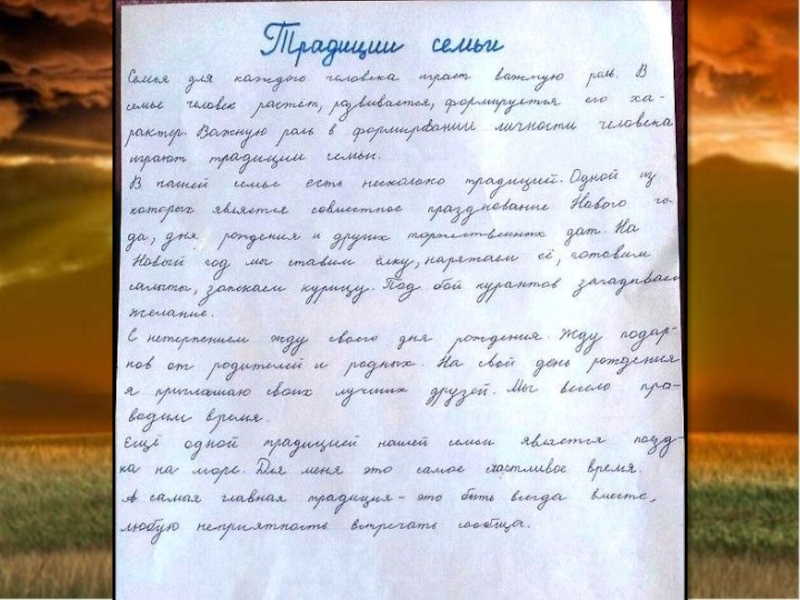 Традиции семьи
Семья для каждого человека играет важную роль. В
семье человек растёт, развивается, формируется его ха-
рактер. Важную роль в формировании личности человека
играют традиции семьи.
В нашей семье есть несколько традиций. Одной из
которых является совместное празднование Нового го-
да, дня рождения и других торжественных дат. На
Новый год мы ставим ёлку, наряжаем её, готовим
салаты, запекаем курицу. Под бой курантов загадываем
желание.
С нетерпением жду своего дня рождения. Жду подар-
ков от родителей и родных. На свой день рождения
я приглашаю своих лучших друзей. Мы весело про-
водим время.
Ещё одной традицией нашей семьи является поезд-
ка на море. Для меня это самое счастливое время.
А самая главная традиция - это быть всегда вместе,
любую неприятность встречать сообща.